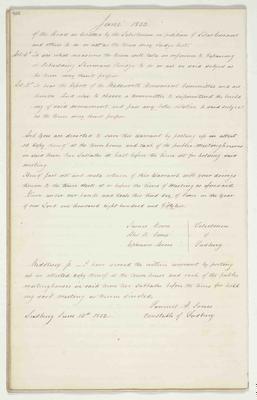 June 1852.
of the Road as laid out by the Selectmen on petition of
and others to do or act as the town may judge best.
Art. 9th To see what measures the town will take in reference to Repairing
or Rebuilding Bridge to do or act on said subject as
the town may think proper.
Art. 10th To hear the Report of the Wadsworth Monument Committee and act
thereon but also to choose a Committee to superintend the build-
ing of said monument and pass any Votes relative to said subject
as the town may think proper.
And you are directed to serve this Warrant by posting up an attest-
ed Copy thereof at the town house and each of the public Meetinghouses
in said town two Sabbaths at least before the time set for holding said
meeting.
Hereof fail not and make return of this Warrant with your doings
thereon to the town Clerk at or before the time of Meeting as aforesaid.
Given under our hands and Seals this day of June in the Year
of our Lord one thousand eight hundred and fifty two.
James Moore Selectmen
of
Moore Sudbury
Middlesex ss. I have served the within warrant by posting
up an attested copy thereof at the town house and each of the public
meetinghouses in said town two Sabbaths before the time for hold-
ing said meeting as therein directed.
Samuel A. Jones
Sudbury June 1852. Constable of Sudbury